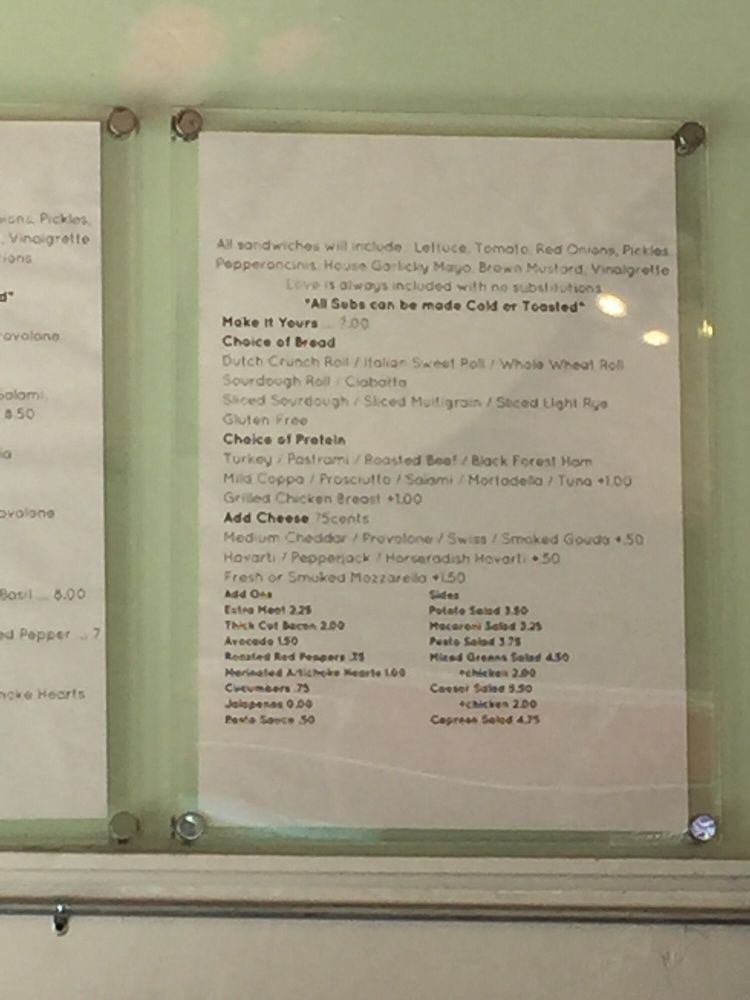 ions, Pickles,
, Vinaigrette
ions
d"
rovolone
Salami,
8.50
ia
ovolone
Basil ... 8.00
ed Pepper ... 7
hoke Hearts
All sandwiches will include: Lettuce, Tomato, Red Onions, Pickles
Pepperoncinis, House Garlicky Mayo, Brown Mustard, Vinaigrette
Love is always included with no substitutions
"All Subs can be made Cold or Toasted"
Make It Yours ... 7.00
Choice of Bread
Dutch Crunch Roll / Italian Sweet Roll / Whole Wheat Roll
Sourdough Roll / Ciabatta
Sliced Sourdough / Sliced Multigrain / Sliced Light Rye
Gluten Free
Choice of Protein
Turkey / Pastrami / Roasted Beef / Black Forest Ham
Mild Coppa / Prosciutto / Salami / Mortadella / Tuna +1.00
Grilled Chicken Breast +1.00
Add Cheese 75cents
Medium Cheddar / Provolone / Swiss / Smoked Gouda +.50
Havarti / Pepperjack / Horseradish Havarti +.50
Fresh or Smoked Mozzarella +1.50
Add Ons
Extra Meat 2.25
Thick Cut Bacon 2.00
Avocado 1.50
Roasted Red Peppers .75
Marinated Artichoke Hearts 1.00
Cucumbers .75
Jalapenos 0.00
Pesto Sauce .50
Sides
Potato Salad 3.50
Macaroni Salad 3.25
Pasta Salad 3.75
Mixed Greens Salad 4.50
+chicken 2.00
Caesar Salad 5.50
+chicken 2.00
Caprese Salad 4.75